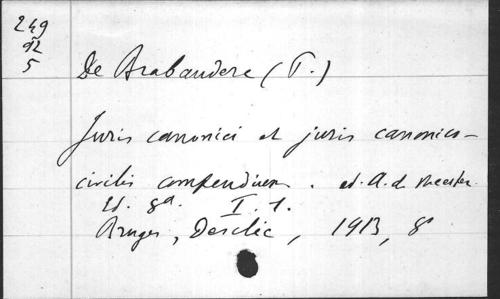 249
92
5
De Brabandere (T.)
Juris canonici et juris canonico-
civilis compendium. ed. A. d. Meester.
Ed. 8a. I. t.
Bruges, Desclée, 1913, 8°